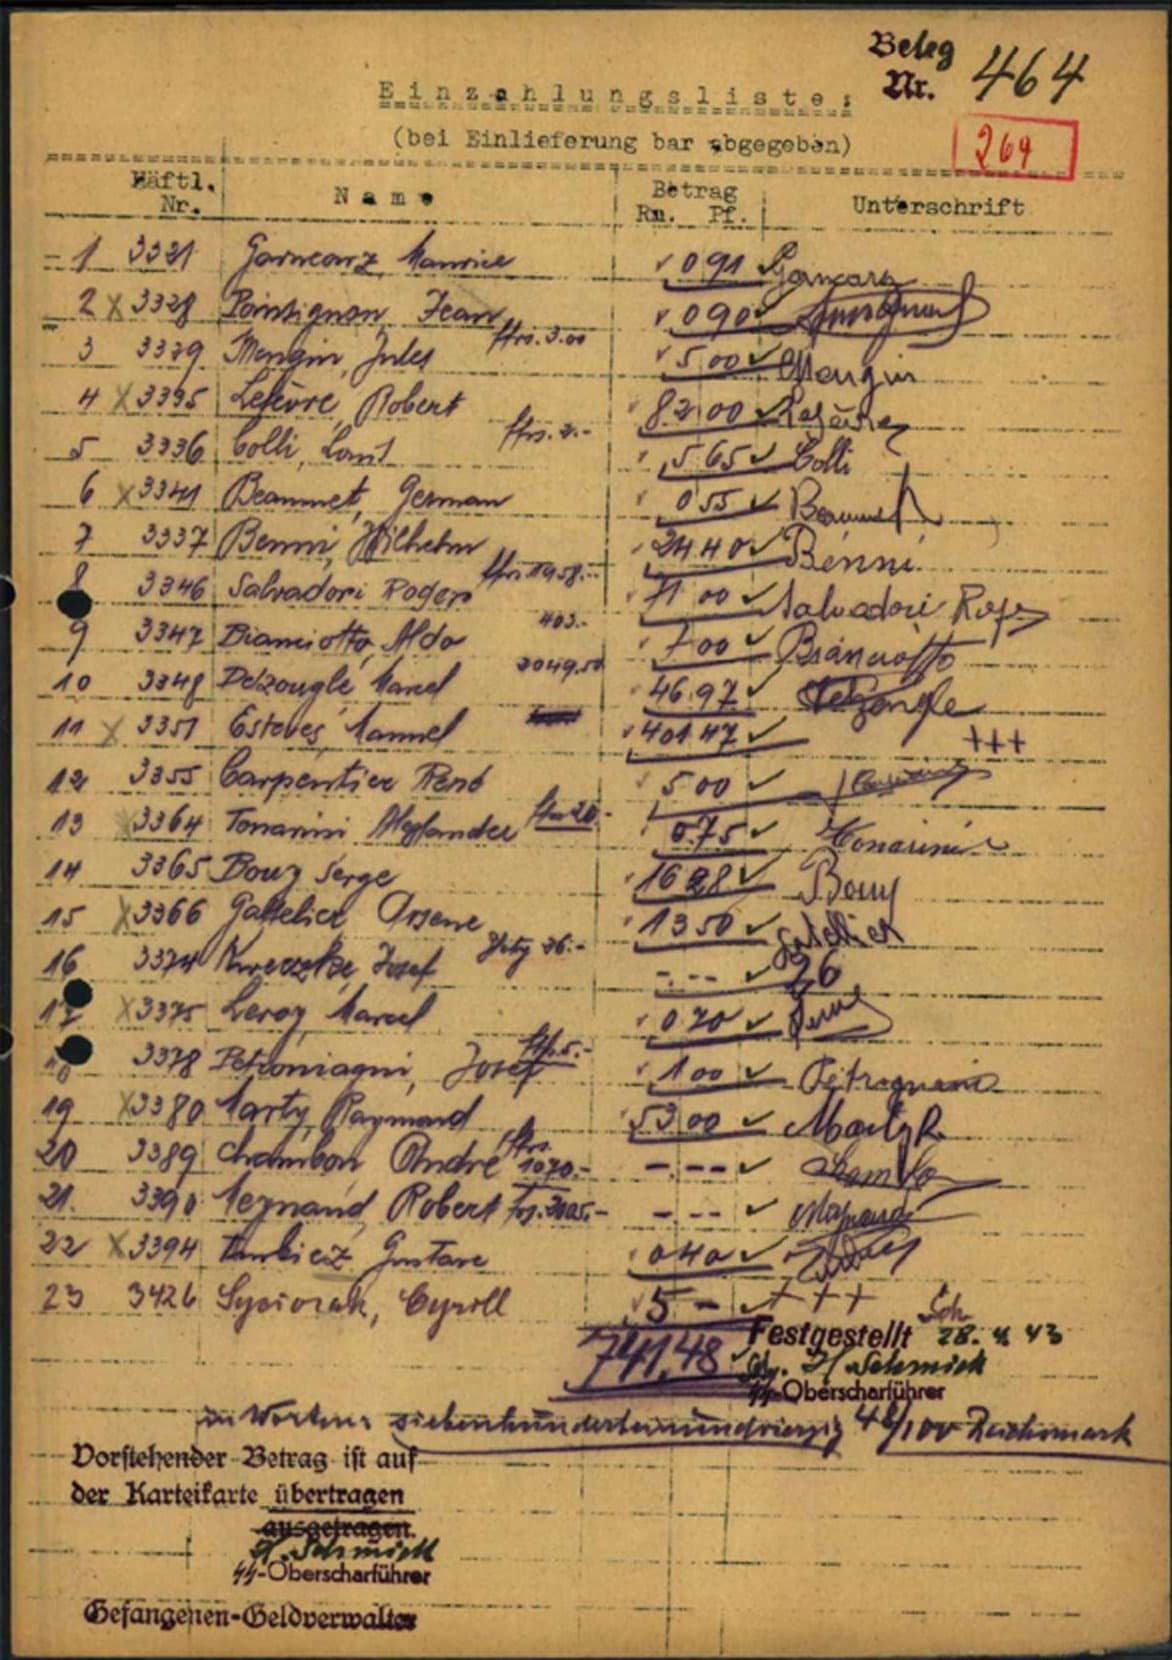 Beleg
Nr. 464
Einzahlungsliste:
(bei Einlieferung bar abgegeben)
269
Häftl. Nr. Name Betrag Rm. Pf. Unterschrift
1 3321 Garncarz, Maurice 0 91 Garncarz
2 X 3328 Pointignon, Jean 0 90
ffrs. 3.00
3 3329 Mengin, Jules 5 00 Mengin
4 X 3395 Lefèvre, Robert 82 00 Lefèvre
ffrs. 2.-
5 3336 Colli, Louis 5 65 Colli
6 X 3341 Beaumet, German 0 55
7 3337 Benni, Wilhelm 24 40 Benni
ffrs 1958.-
8 3346 Salvadori Roger 71 00 Salvadori Roger
403.-
9 3347 Bianciotto, Aldo 7 00 Bianciotto
2049.50
10 3348 Delzougle Marcel 46 97 Delzongle
11 X 3351 Esteves, Manuel 401 47 +++
12 3355 Carpentier René 5 00
ffrs 20.-
13 X 3364 Tonarini 0.75 Tonarini
14 3365 Bouy Serge 16 28 Bouy
15 X 3366 Gattelier Arsene 13 50 Gatellier
Zloty 36.-
16 3374 Josef -.--
17 X 3375 Leroy, Marcel 0 70
ffr. 5.-
3378 Petroniagni, Josef 1 00
19 X 3380 Marty, Raymond 53 00 Marty R.
ffrs.
20 3389 Chambon, André 1070.- -.--
21. 3390 Meynand, Robert -.--
22 X 3394 Gustave 0 40
23 3426 Cyrill 5 - +++
741,48 Festgestellt 28. 4. 43
H. Schmidt
SS-Oberscharführer
in Worten: siebenhunderteinundvierzig 48/100 Reichsmark
Vorstehender Betrag ist auf
der Karteikarte übertragen
ausgetragen.
H. Schmidt
SS-Oberscharführer
Gefangenen-Geldverwalter